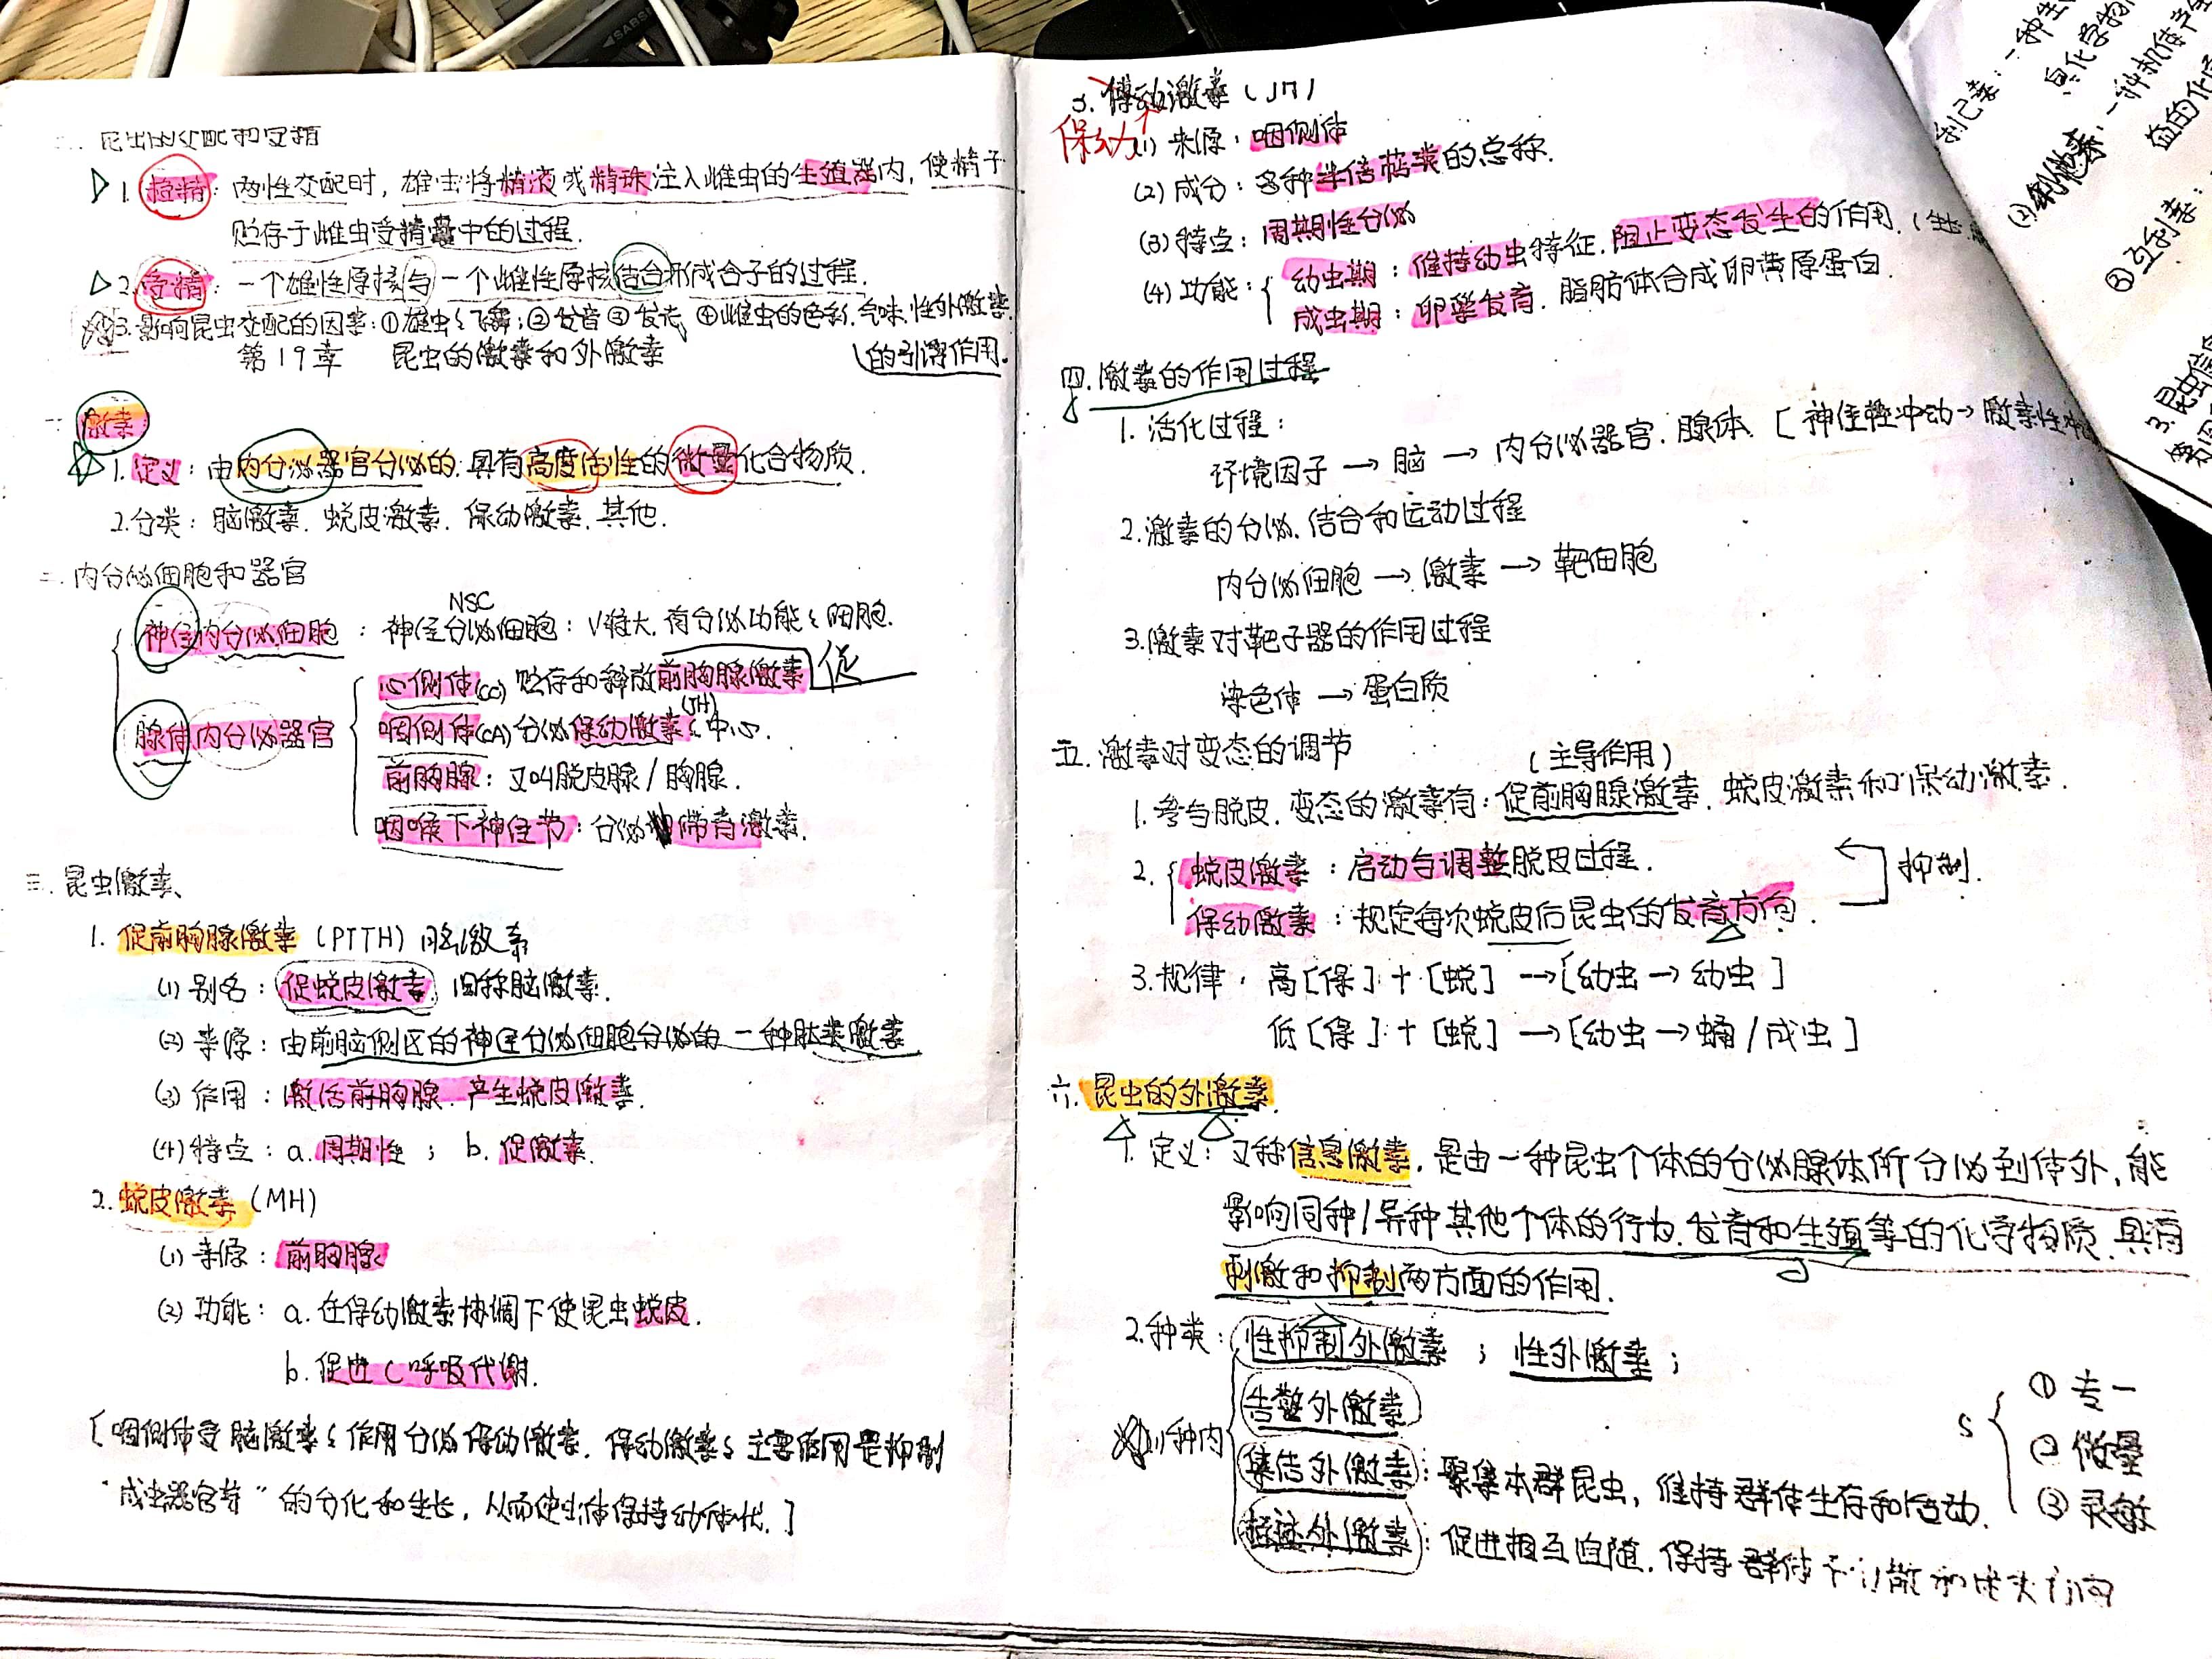 昆虫的交配和受精
1. 授精：两性交配时，雄虫将精液或精珠注入雌虫的生殖器内，使精子
贮存于雌虫受精囊中的过程.
2. 受精：一个雄性原核与一个雌性原核结合形成合子的过程.
3. 影响昆虫交配的因素：①雄虫飞舞；②发音③发光④雌虫的色彩.气味.性外激素
的引诱作用.
第19章 昆虫的激素和外激素
一. 激素
1. 定义：由内分泌器官分泌的.具有高度活性的微量化合物质.
2. 分类：脑激素. 蜕皮激素. 保幼激素. 其他.
二. 内分泌细胞和器官
NSC
神经内分泌细胞：神经分泌细胞：V较大.有分泌功能之细胞.
腺体内分泌器官
心侧体(CC) 贮存和释放前胸腺激素 促
咽侧体(CA) 分泌保幼激素(JH)之中心.
前胸腺：又叫脱皮腺/胸腺.
咽喉下神经节：分泌滞育激素.
三. 昆虫激素
1. 促前胸腺激素 (PTTH) 脑激素
(1) 别名：促蜕皮激素. 旧称脑激素.
(2) 来源：由前脑侧区的神经分泌细胞分泌的一种肽类激素
(3) 作用：激活前胸腺.产生蜕皮激素.
(4) 特点：a. 周期性；b. 促激素.
2. 蜕皮激素 (MH)
(1) 来源：前胸腺
(2) 功能：a. 在保幼激素协调下使昆虫蜕皮.
b. 促进C呼吸代谢.
[咽侧体受脑激素之作用分泌保幼激素. 保幼激素之主要作用是抑制
"成虫器官芽"的分化和生长，从而使虫体保持幼体状.]
3. 激素 (JH)
保幼
(1) 来源：咽侧体
(2) 成分：多种半倍萜类的总称.
(3) 特点：周期性分泌
(4) 功能：
幼虫期：维持幼虫特征.阻止变态发生的作用.
成虫期：卵巢发育. 脂肪体合成卵黄原蛋白.
四. 激素的作用过程
1. 活化过程：
环境因子→脑→内分泌器官. 腺体. [神经性冲动→激素性
2. 激素的分泌.结合和运动过程
内分泌细胞→激素→靶细胞
3. 激素对靶子器的作用过程
染色体→蛋白质
五. 激素对变态的调节
(主导作用)
1. 参与脱皮.变态的激素有：促前胸腺激素. 蜕皮激素和保幼激素.
2. 蜕皮激素：启动与调整脱皮过程.
保幼激素：规定每次蜕皮后昆虫的发育方向.
抑制.
3. 规律. 高[保]+[蜕]→[幼虫→幼虫]
低[保]+[蜕]→[幼虫→蛹/成虫]
六. 昆虫的外激素.
1. 定义：又称信息激素. 是由一种昆虫个体的分泌腺体所分泌到体外，能
影响同种/异种其他个体的行为.发育和生殖等的化学物质.具有
刺激和抑制两方面的作用.
2. 种类：性抑制外激素；性外激素；
(1)种内
告警外激素
集结外激素：聚集本群昆虫，维持群体生存和活动.
标迹外激素：促进相互追随.保持群体不
S
① 专一
② 微量
③ 灵敏
利己素：一种生
息化学物
(2)利他素：一种机体产生
益的化
③ 互利素：
3. 昆虫信